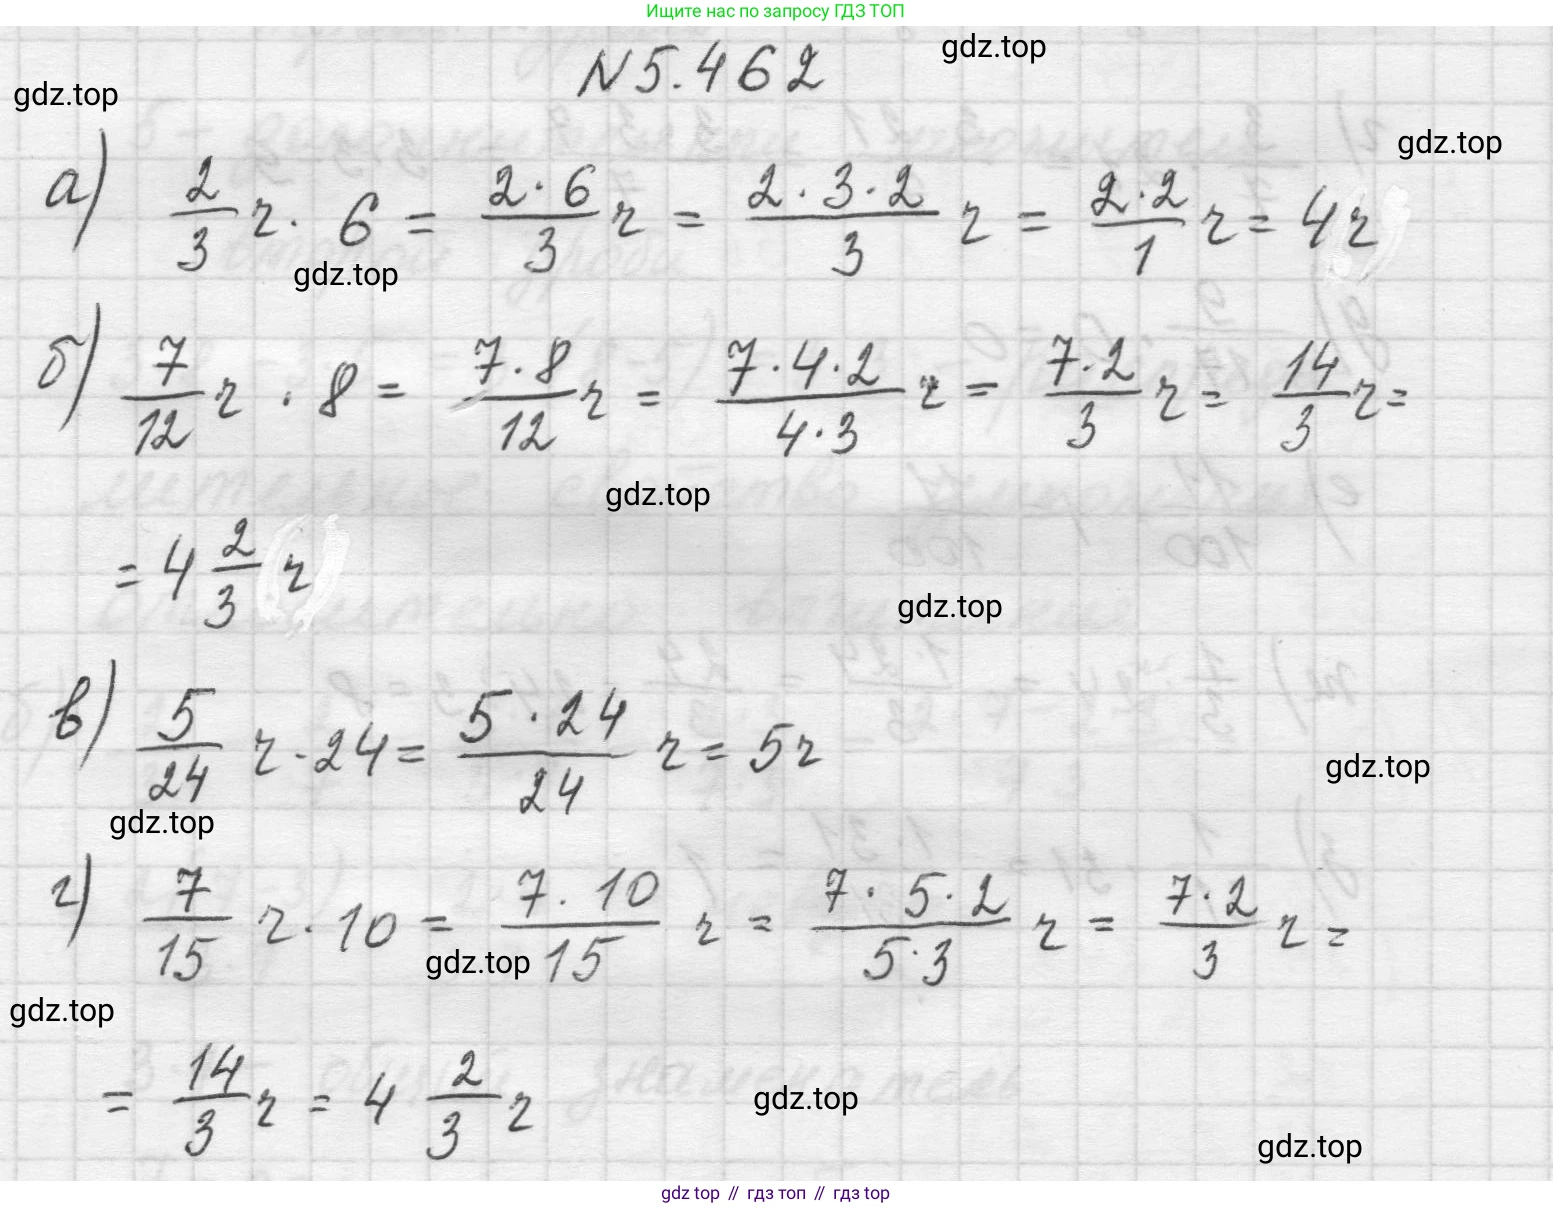 Ищите нас по запросу ГДЗ ТОП
N 5.462
gdz.top
gdz.top
gdz.top
а) 2/3 г · 6 = 2·6/3 г = 2·3·2/3 г = 2·2/1 г = 4г
gdz.top
б) 7/12 г · 8 = 7·8/12 г = 7·4·2/4·3 г = 7·2/3 г = 14/3 г =
gdz.top
= 4 2/3 г
gdz.top
в) 5/24 г · 24 = 5·24/24 г = 5г
gdz.top
gdz.top
г) 7/15 г · 10 = 7·10/15 г = 7·5·2/5·3 г = 7·2/3 г =
gdz.top
gdz.top
= 14/3 г = 4 2/3 г
gdz.top
gdz.top
gdz top // гдз топ // гдз top